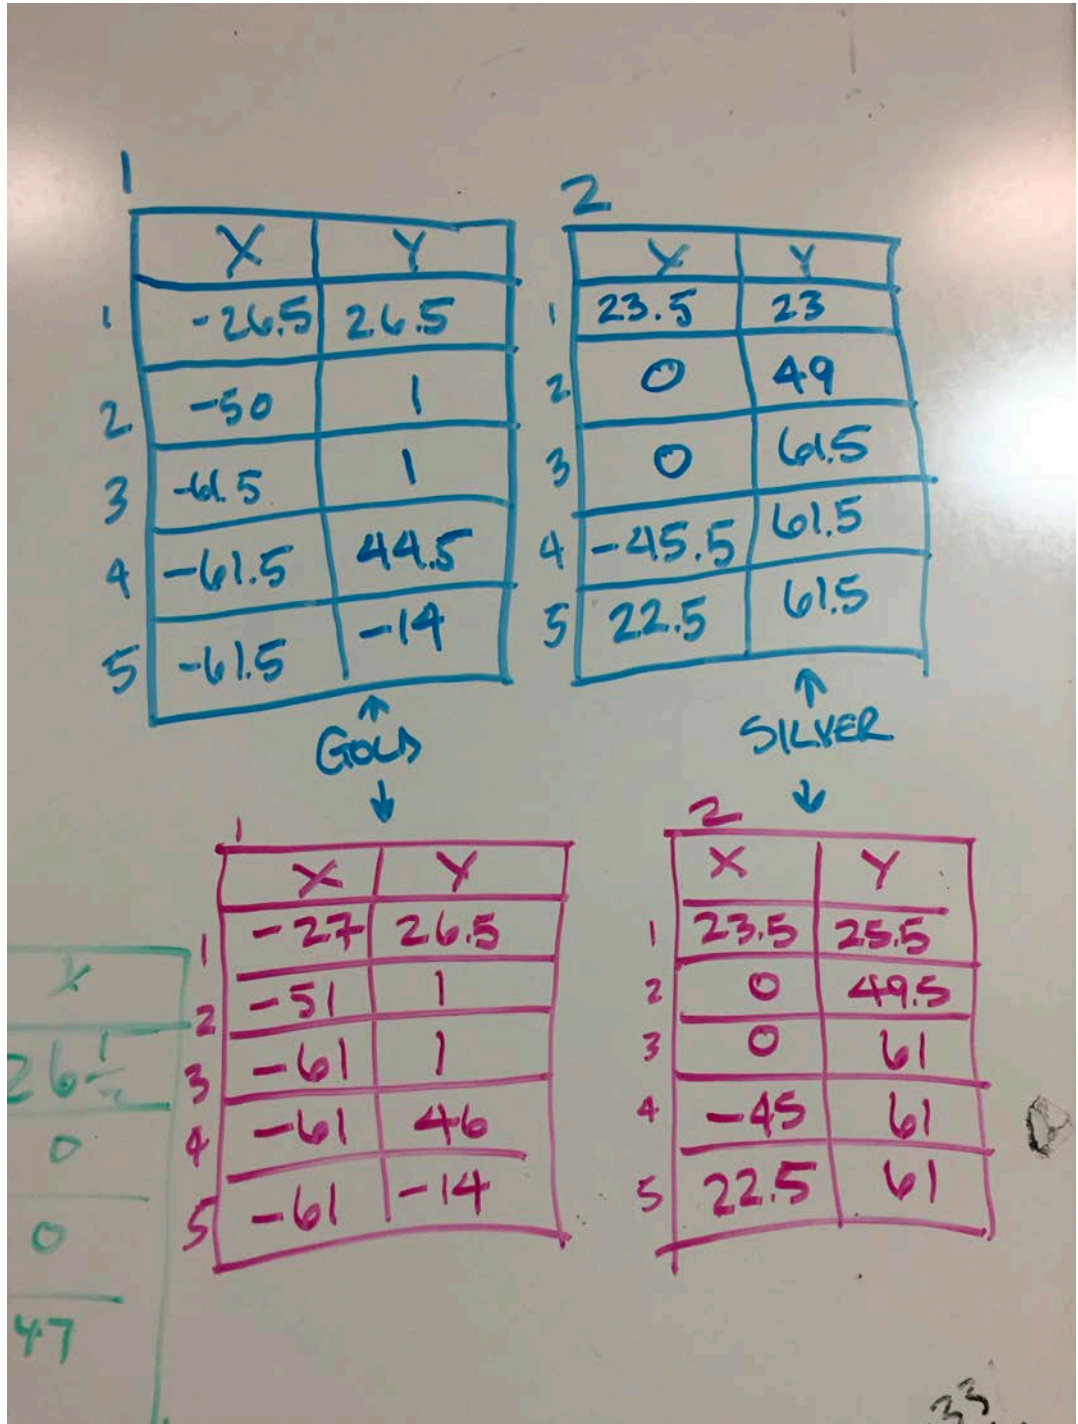 1
X Y
1 -26.5 26.5
2 -50 1
3 -61.5 1
4 -61.5 44.5
5 -61.5 -14
2
X Y
1 23.5 23
2 0 49
3 0 61.5
4 -45.5 61.5
5 22.5 61.5
↑
GOLD
↓
↑
SILVER
↓
1
X Y
1 -27 26.5
2 -51 1
3 -61 1
4 -61 46
5 -61 -14
2
X Y
1 23.5 25.5
2 0 49.5
3 0 61
4 -45 61
5 22.5 61
X
0
0
47
33